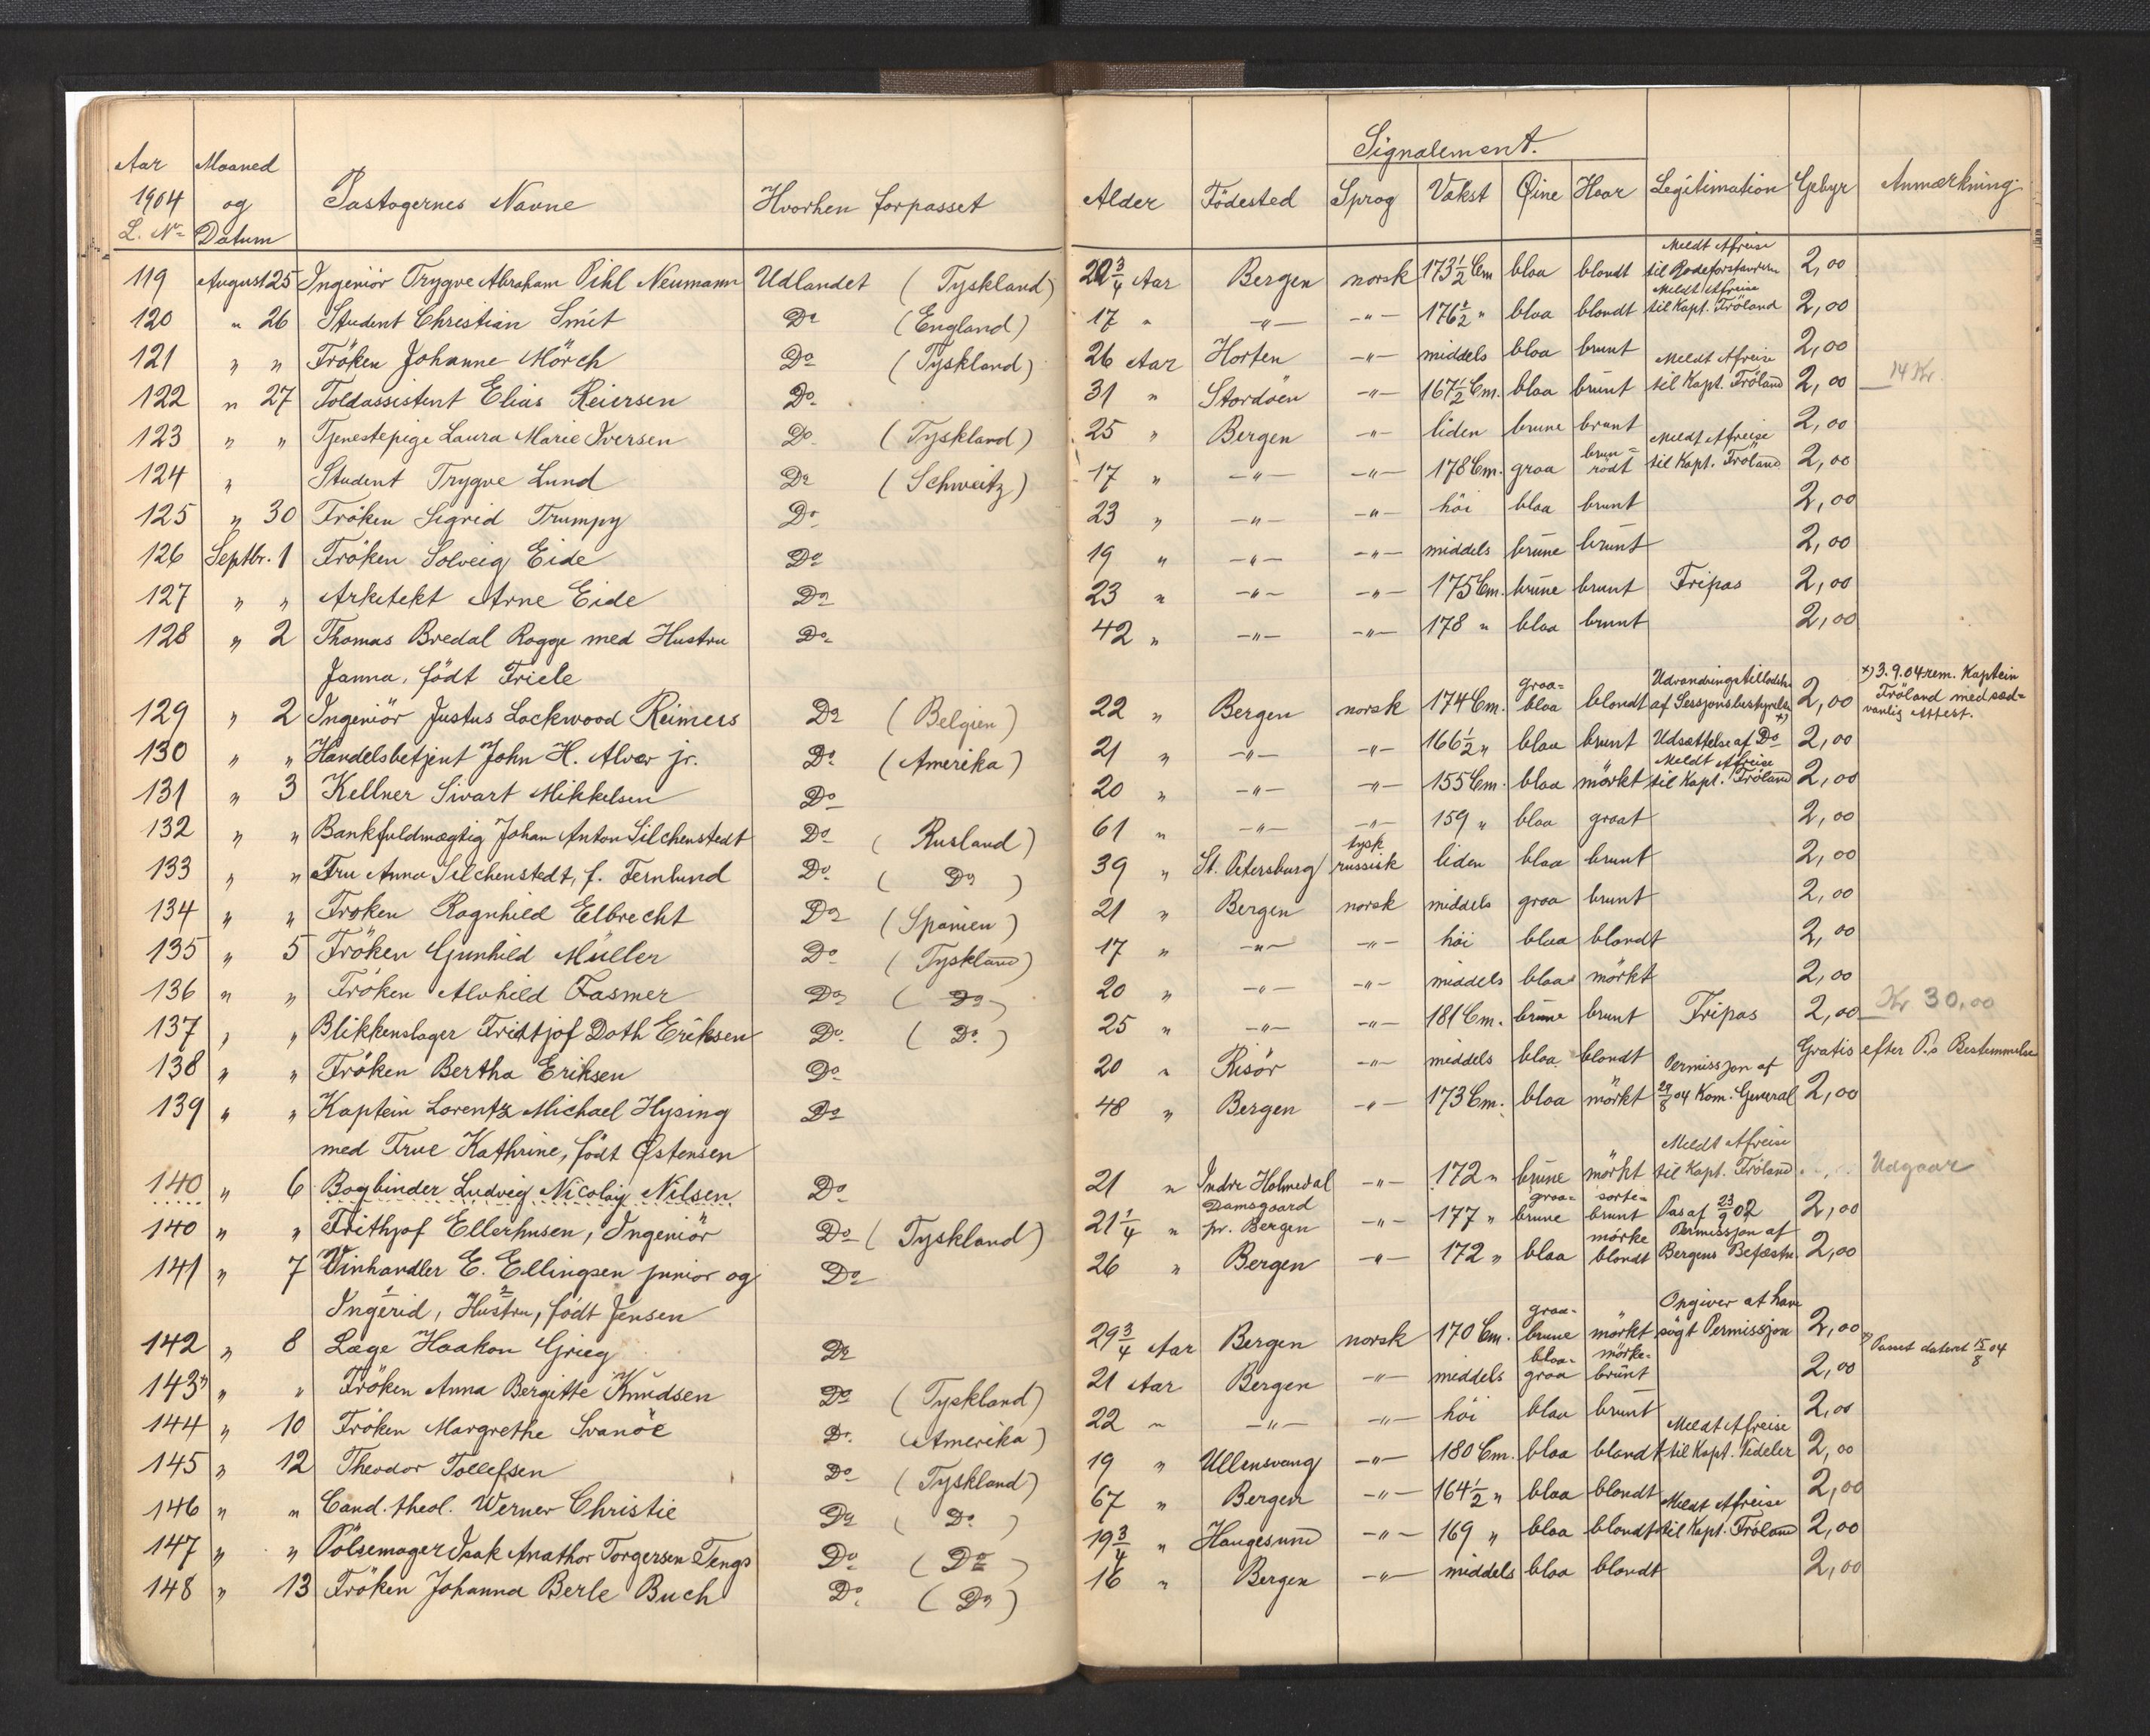 Signalement.
Aar 1904 L. No Maaned og Datum Pastagernes Navne Hvorhen forpasset Alder Födested Sprog Vakst Øine Haar Legitimation Gebyr Anmærkning
119 August 25 Ingeniör Trygve Abraham Pihl Neumann Udlandet (Tyskland) 20 3/4 Aar Bergen norsk 173 1/2 Cm blaa blondt Meldt Afreise til Rodeforstanderen 2,00
120 " 26 Student Christian Smit Do (England) 17 " -"- -"- 176 1/2 " blaa blondt Meldt Afreise til Kapt. Fröland 2,00
121 " " Fröken Johanne Mörch Do (Tyskland) 26 Aar Horten -"- middels blaa brunt 2,00
122 " 27 Toldassistent Elias Reiersen Do 31 " Stordöen -"- 167 1/2 Cm. blaa brunt Meldt Afreise til Kapt. Fröland 2,00 14 Kr.
123 " " Tjenestepige Laura Marie Iversen Do (Tyskland) 25 " Bergen -"- liden brune brunt 2,00
124 " Student Trygve Lund Do (Schweitz) 17 " -"- -"- 178 Cm. graa brun= rödt Meldt Afreise til Kapt. Fröland 2,00
125 " 30 Fröken Sigrid Trumpy Do 23 " -"- -"- höi blaa brunt 2,00
126 Septbr. 1 Fröken Solveig Eide Do 19 " -"- -"- middels brune brunt 2,00
127 " " Arkitekt Arne Eide Do 23 " -"- -"- 175 Cm. brune brunt Fripas 2,00
128 " 2 Thomas Bredal Rogge med Hustru Do 42 " -"- -"- 178 " blaa brunt 2,00
Janna, födt Friele
129 " 2 Ingeniör Justus Lockwood Reimers Do (Belgien) 22 " Bergen norsk 174 Cm. graa= blaa blondt af Sessjonsbestyrelse x) 2,00 x) 3.9.04 rem. Kaptein Fröland med sæd= vanlig Attest.
130 " " Handelsbetjent John H. Alver jr. Do (Amerika) 21 " -"- -"- 166 1/2 " blaa brunt Udsættelse af Do 2,00
131 " 3 Kellner Sivart Mikkelsen Do 20 " -"- -"- 155 Cm. blaa mörkt Meldt Afreise til Kapt. Fröland 2,00
132 " " Bankfuldmægtig Johan Anton Silchenstedt Do (Rusland) 61 " -"- -"- 159 " blaa graat 2,00
133 " " Fru Anna Silchenstedt, f. Fernlund Do (Do) 39 " St. Petersburg tysk russisk liden blaa brunt 2,00
134 " " Fröken Ragnhild Elbrecht Do (Spanien) 21 " Bergen norsk middels graa brunt 2,00
135 " 5 Fröken Gunhild Müller Do (Tyskland) 17 " -"- -"- höi blaa blondt 2,00
136 " " Fröken Alvhild Fasmer Do (Do) 20 " -"- -"- middels blaa mörkt 2,00
137 " " Blikkenslager Fridtjof Doth Eriksen Do (Do) 25 " -"- -"- 181 Cm. brune brunt Fripas 2,00 Kr 30,00
138 " " Fröken Bertha Eriksen Do 20 " Risör -"- middels blaa blondt Gratis efter P.s Bestemmelse
139 " " Kaptein Lorentz Michael Hysing Do 48 " Bergen -"- 173 Cm. blaa mörkt Permissjon af 29/8 04 Kom. General 2,00
med Frue Kathrine, födt Østensen
140 " 6 Bogbinder Ludvig Nicolay Nilsen Do 21 " Indre Holmedal -"- 172 " brune mörkt Meldt Afreise til Kapt. Fröland Udgaar
140 " " Frithjof Ellerhusen, Ingeniör Do (Tyskland) 21 1/4 " Damsgaard pr. Bergen -"- 177 " graa= brune sorte= brunt Pas af 23/9 02 2,00
141 " 7 Vinhandler E. Ellingsen junior og Do 26 " Bergen -"- 172 " blaa mörke blondt Permissjon af Bergens Befæstn. 2,00
Ingerid, Hustru, födt Jensen
142 " 8 Læge Haakon Grieg Do 29 3/4 Aar Bergen norsk 170 Cm. graa= brune mörkt Opgiver at have sögt Permissjon 2,00
143 x) " " Fröken Anna Bergitte Knudsen Do (Tyskland) 21 Aar Bergen -"- middels blaa= graa mörke= brunt 2,00 x) Passet dateret 15/8 04
144 " 10 Fröken Margrethe Svanöe Do (Amerika) 22 " -"- -"- höi blaa brunt 2,00
145 " 12 Theodor Tollefsen Do (Tyskland) 19 " Ullensvang -"- 180 Cm. blaa blondt Meldt Afreise til Kapt. Vedeler 2,00
146 " " Cand. theol. Werner Christie Do (Do) 67 " Bergen -"- 164 1/2 " blaa blondt 2,00
147 " " Pölsemager Isak Anathor Torgersen Tengs Do (Do) 19 3/4 " Haugesund -"- 169 " blaa blondt Meldt Afreise til Kapt. Fröland 2,00
148 " 13 Fröken Johanna Berle Buch Do (Do) 16 " Bergen -"- middels blaa blondt 2,00